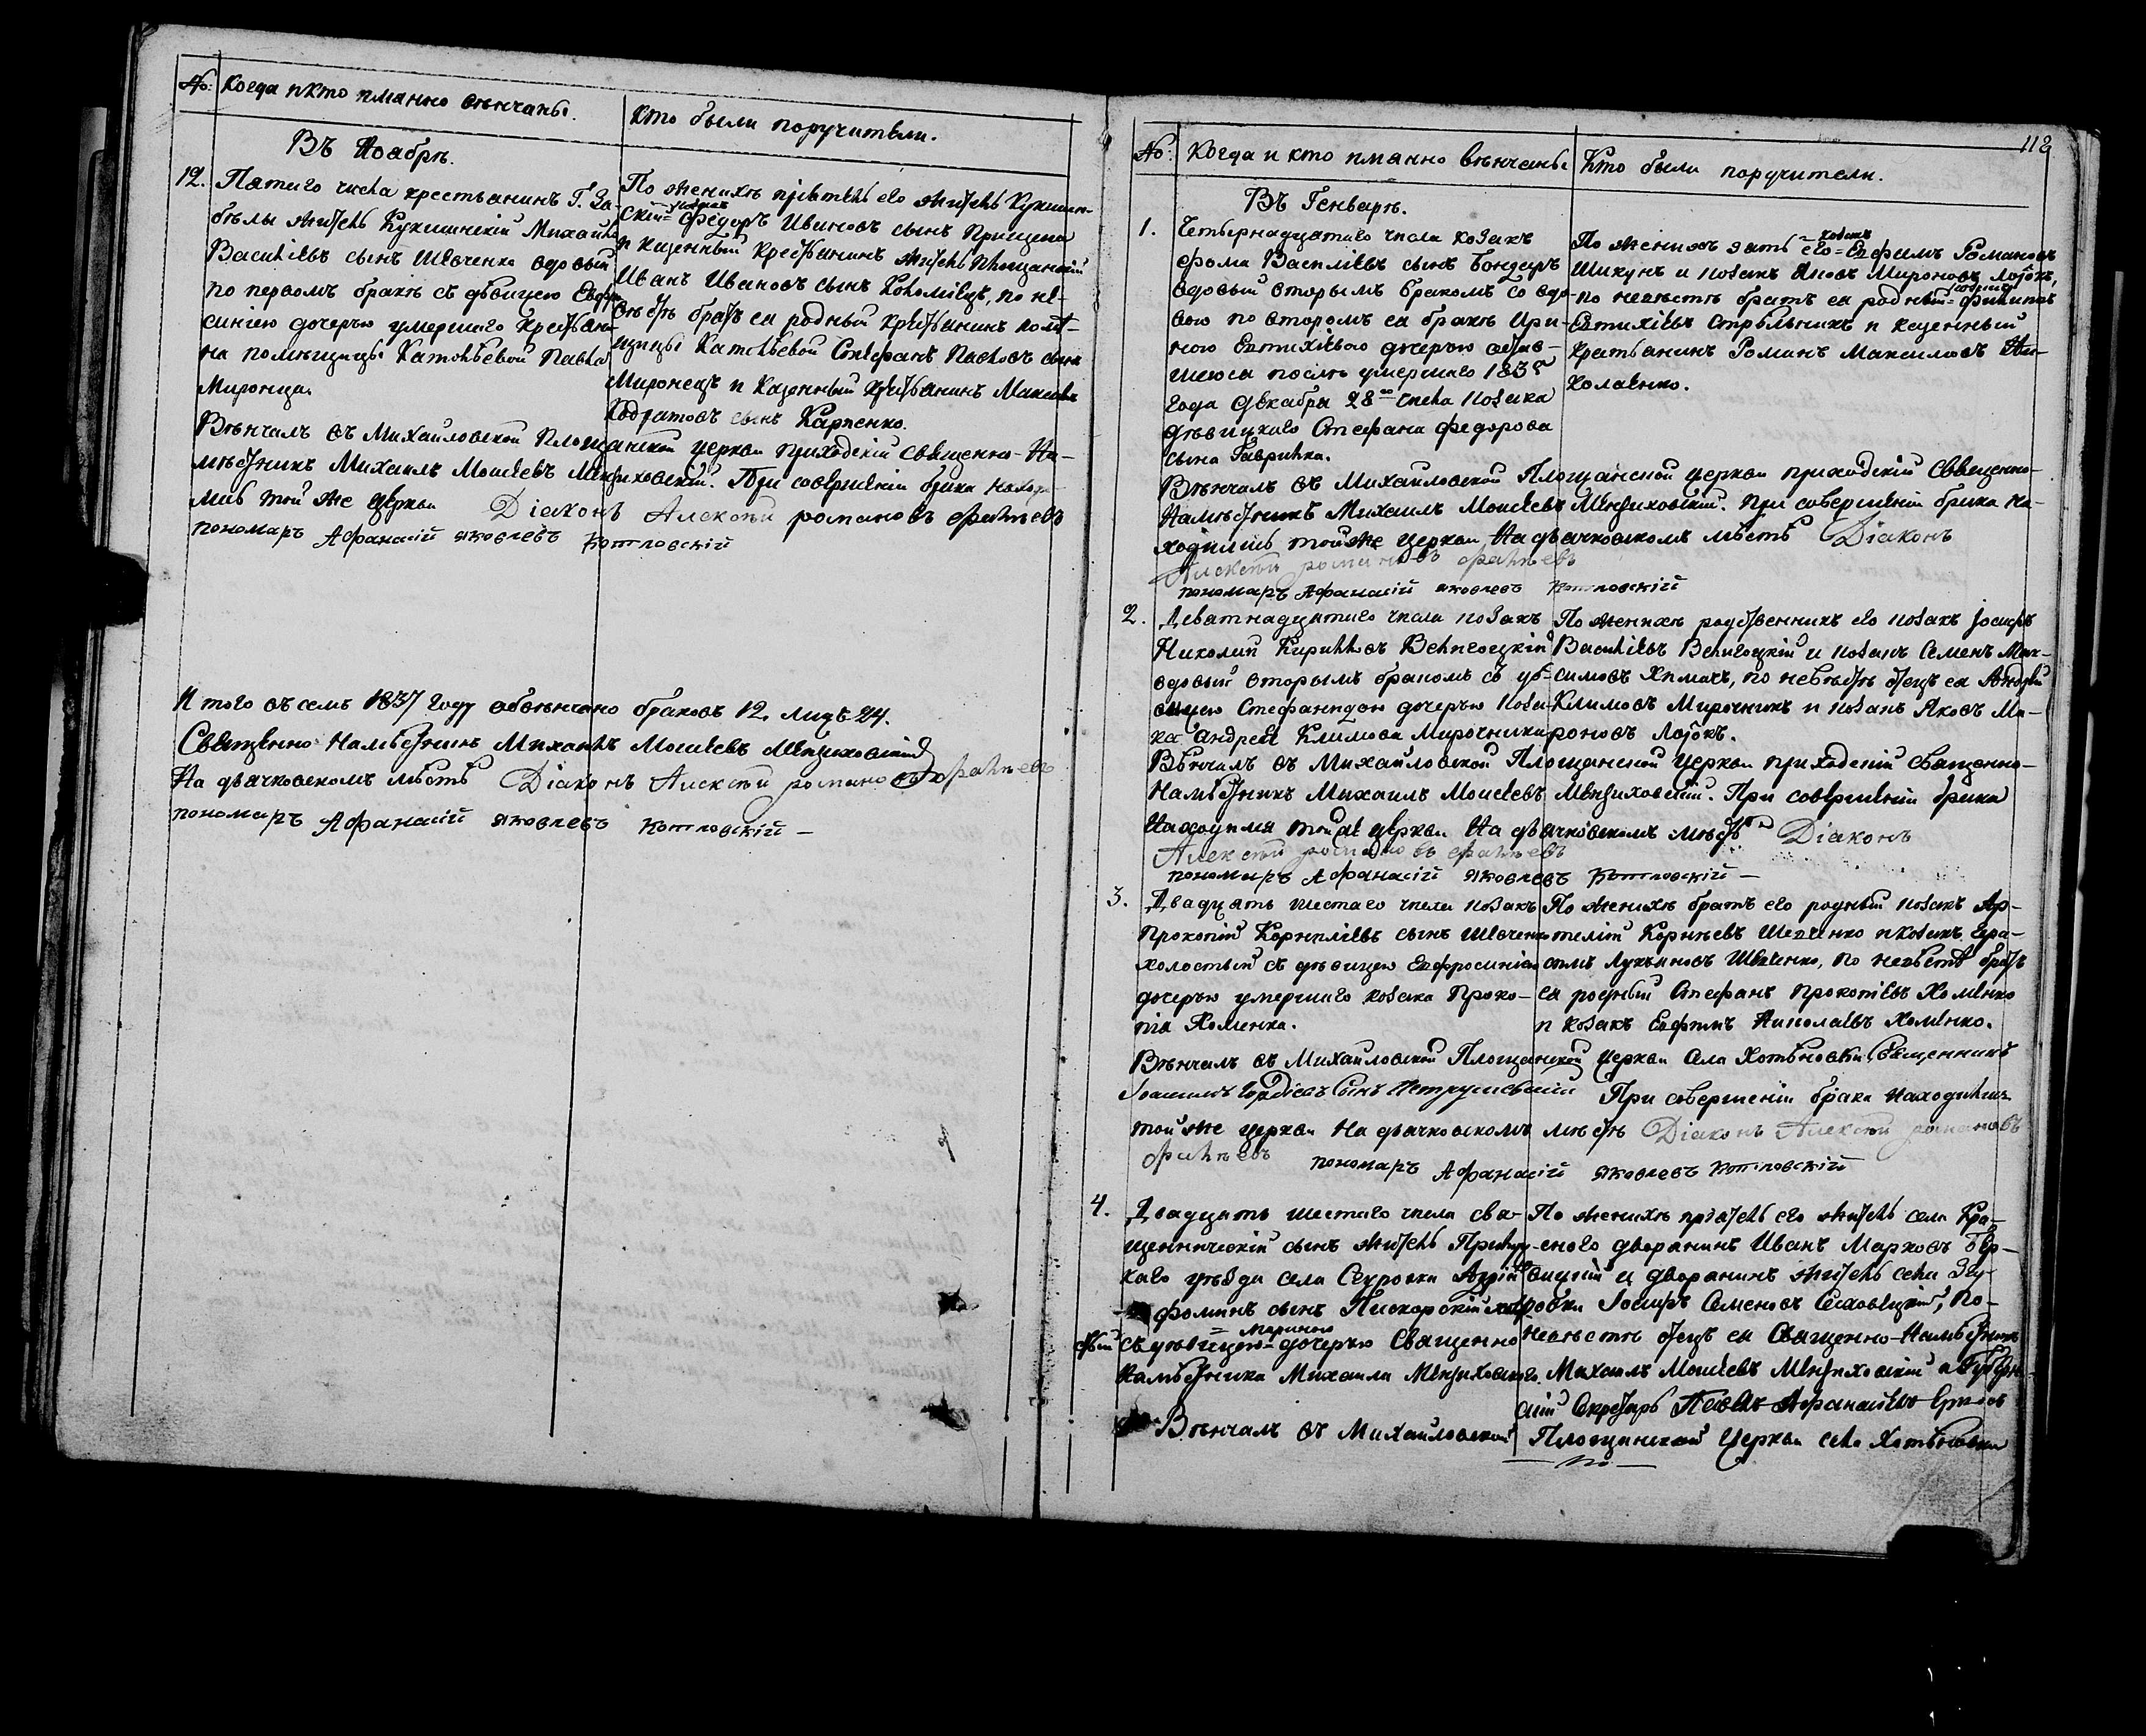 №: Когда и кто имянно вѣнчаны.
Кто были поручители.
Въ Ноябрѣ.
12. Пятаго числа крестьянинъ Г. За-
бѣлы житель Кукшинскій Михайло
Василіевъ сынъ Шевченко вдовый
по первомъ бракѣ съ дѣвицею Евфро-
синіею дочерью умершаго крестьяни-
на помѣщицы Каменѣвой Павла
Миронца.
По женихѣ пріятель его житель Кукшин-
скій Федоръ Ивановъ сынъ Прищепа
и казенный крестьянинъ житель Площанскій
Иванъ Ивановъ сынъ Коломіецъ, по не-
вѣстѣ братъ ея родный крестьянинъ помѣ-
щицы Стефанъ Павловъ сынъ
Миронецъ и казенный крестьянинъ Максимъ
Кодратовъ сынъ Карпенко.
Вѣнчалъ въ Михайловской Площанской церкви приходскій священно-На-
мѣстникъ Михаилъ Моисѣевъ Менжиховскій. При совершеніи брака находи-
лись той же церкви Діаконъ Алексѣй романовъ
пономаръ Афанасій яковлевъ Котловскій
Итого въ семъ 1837 году обвѣнчано браковъ 12. лицъ 24.
Священно-Намѣстникъ Михаилъ Моисѣевъ Менжиховскій
На дьячковскомъ мѣстѣ Діаконъ Алексѣй романовъ
пономаръ Афанасій яковлевъ Котловскій —
112
№: Когда и кто имянно вѣнчаны
Кто были поручители.
Въ Генварѣ.
1. Четырнадцатаго числа козакъ
Фома Василіевъ сынъ Бондаръ
вдовый вторымъ бракомъ со вдо-
вою по второмъ ея бракѣ Ири-
ною Евтихіевою дочерью остав-
шеюся послѣ умершаго
года Декабря 28 числа козака
Стефана Федорова
сына Гаврилка.
По женихѣ зять его козакъ Евфимъ Романовъ
Шикунъ и козакъ Яковъ Мироновъ
по невѣстѣ братъ ея родный Филиппъ
Евтихіевъ Стрѣльникъ и казенный
крестьянинъ Романъ Максимовъ Ни-
колаенко.
Вѣнчалъ въ Михайловской Площанской церкви приходскій священно-
Намѣстникъ Михаилъ Моисѣевъ Менжиховскій. При совершеніи брака на-
ходились той же церкви, На дьячковскомъ мѣстѣ Діаконъ
Алексѣй романовъ
пономаръ Афанасій яковлевъ Котловскій
2. Девятнадцатаго числа козакъ
Николай Кирилловъ
вдовый вторымъ бракомъ съ дѣ-
вицею Стефанидою дочерью коза-
ка Андрея Климова Мирочника
По женихѣ родственникъ его козакъ Іосифъ
Василіевъ и козакъ Семенъ Мак-
симовъ Химачъ, по невѣстѣ отецъ ея Андрей
Климовъ Мирочникъ и козакъ Яковъ Ми-
роновъ
Вѣнчалъ въ Михайловской Площанской церкви приходскій священно-
Намѣстникъ Михаилъ Моисѣевъ Менжиховскій. При совершеніи брака
Находился той же церкви На дьячковскомъ мѣстѣ Діаконъ
Алексѣй романовъ
пономаръ Афанасій яковлевъ Котловскій —
3. Двадцать шестаго числа козакъ
Прокопій Корниліевъ сынъ Шевченко
холостый съ дѣвицею Евфросиніею
дочерью умершаго козака Проко-
пія Хоменка.
По женихѣ братъ его родный козакъ Ар-
темій Корнѣевъ Шевченко и козакъ Ера-
стъ Лукьяновъ Шевченко, по невѣстѣ братъ
ея родный Стефанъ Прокопіевъ Хоменко
и козакъ Евфимъ Николаевъ Хоменко.
Вѣнчалъ въ Михайловской Площанской церкви села Хотьновки Священникъ
Іоаннъ Гордіевъ Сынъ Петрушевскій При совершеніи брака находились
той же церкви На дьячковскомъ мѣстѣ Діаконъ Алексѣй романовъ
пономаръ Афанасій яковлевъ Котловскій
4. Двадцать шестаго числа свя-
щенническій сынъ житель Прилуц-
каго уѣзда села
Фоминъ сынъ Пискорскій холо-
стый съ дѣвицею Мариною дочерью Священно
Намѣстника Михаила Менжиховскаго.
По женихѣ пріятель его житель села Кра-
снаго дворянинъ Иванъ Марковъ
и дворянинъ житель села
Іосифъ Семеновъ по
невѣстѣ отецъ ея Священно-Намѣстникъ
Михаилъ Моисѣевъ Менжиховскій и Губерн-
скій Секретарь Павелъ Афанасіевъ
Вѣнчалъ въ Михайловской Площанской Церкви села Хотьновки